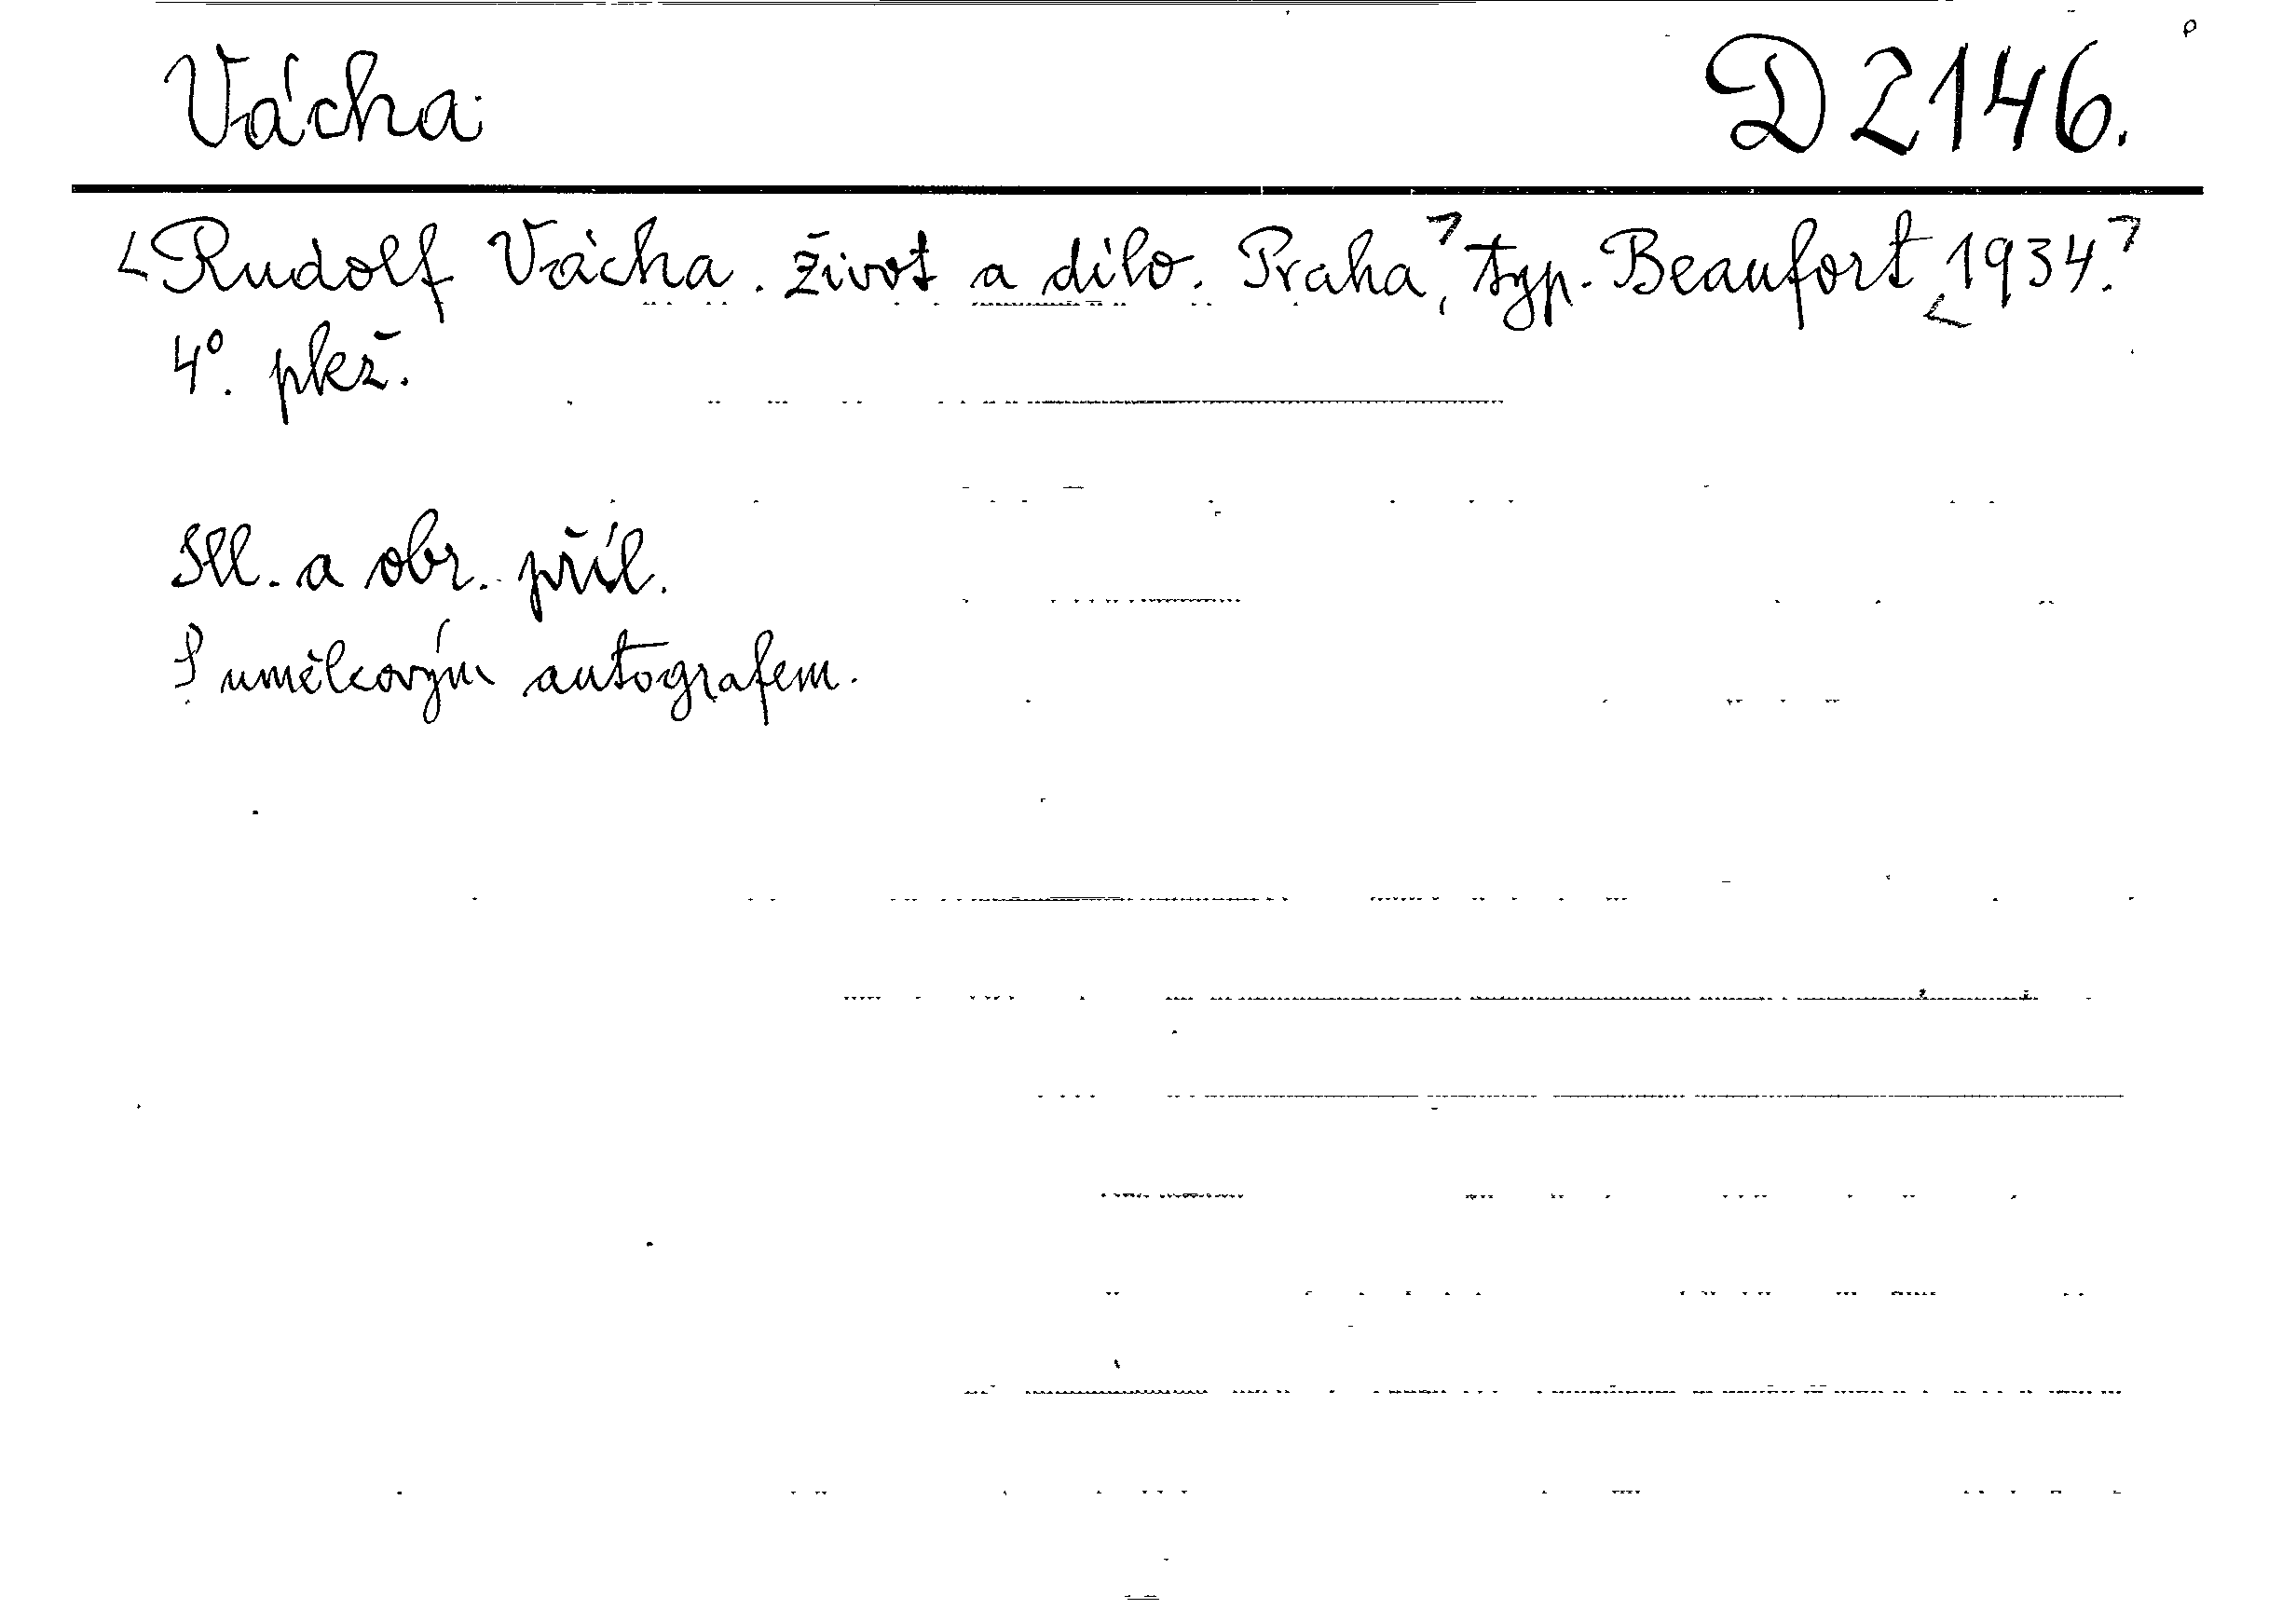 Vácha D 2146.
<Rudolf Vácha. Život a dílo. Praha,> typ. Beaufort <1934.>
4°. pkž.
Ill. a obr. příl.
S umělcovým autografem.